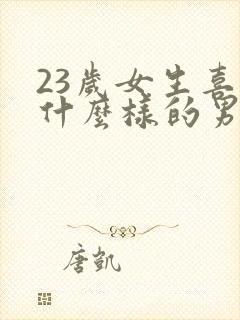 23歲女生喜
什麼樣的男
唐凱